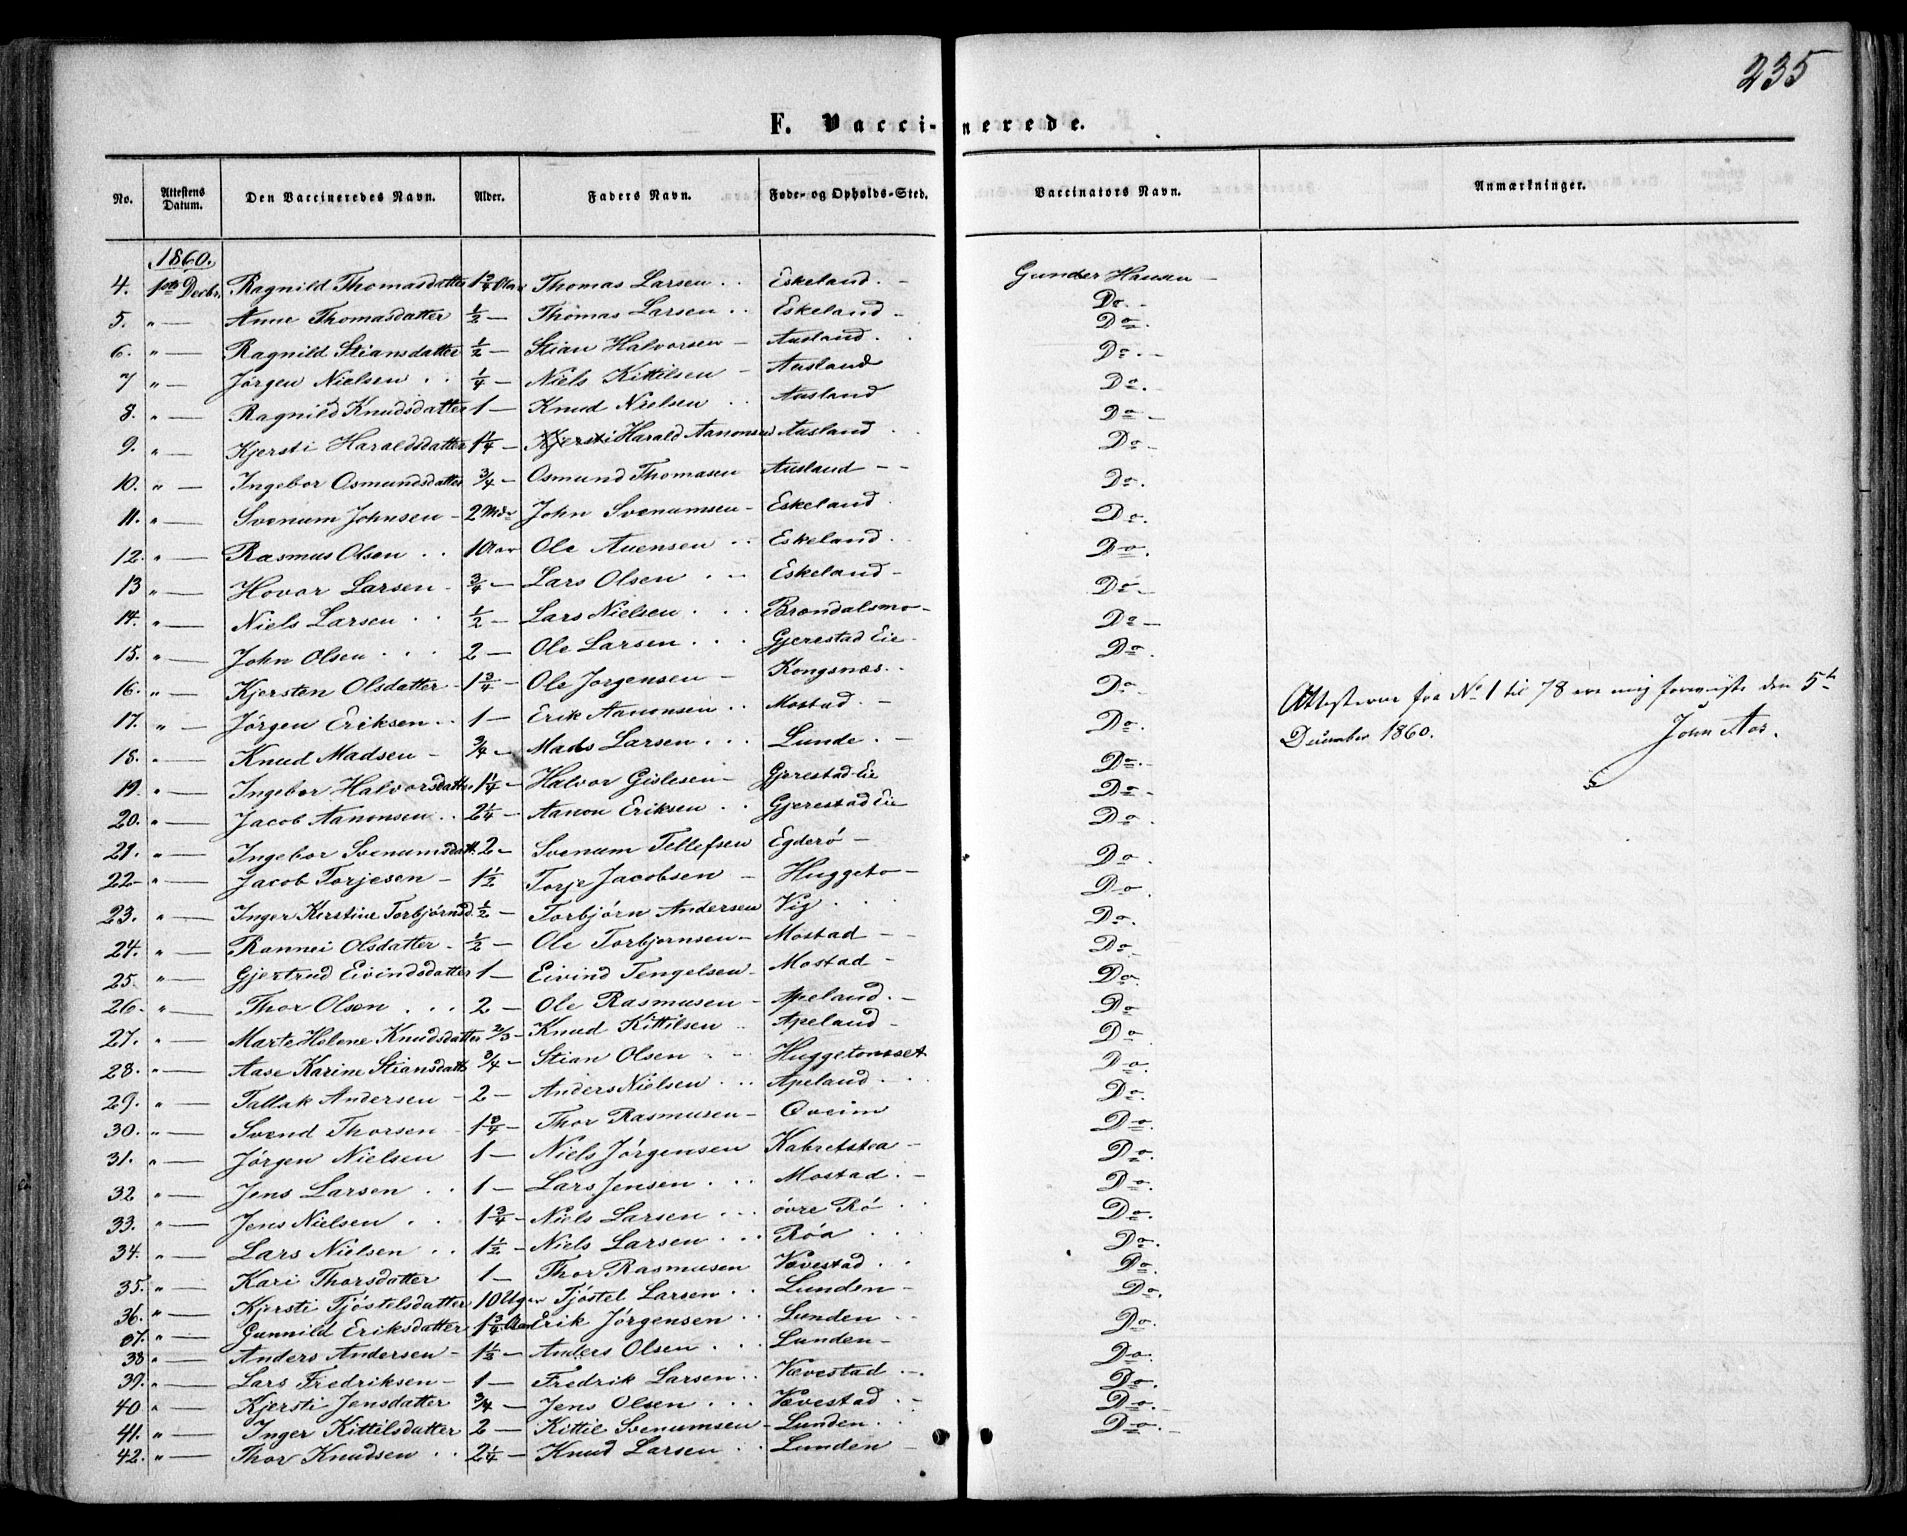 235
F. Vaccinerede.
No. Attestens Datum. Den Vaccineredes Navn. Alder. Faders Navn. Føde- og Opholds-Sted. Vaccinators Navn. Anmærkninger.
1860.
4. 1ste Decbr. Ragnild Thomasdatter 1 3/4 Aar Thomas Larsen Eskeland. Gunder Hansen
5. " — Anne Thomasdatter 1/2 — Thomas Larsen Eskeland Do.
6. " — Ragnild Stiansdatter 1/2 — Stian Halvorsen Ausland. Do.
7 " — Jørgen Nielsen 1/4 — Niels Kittilsen Ausland Do.
8. " — Ragnild Knudsdatter 1 — Knud Nielsen Ausland Do.
9. " — Kjersti Haraldsdatter 1 1/4 — Harald Aanonsen Ausland Do.
10. " — Ingebor Osmundsdatter 3/4 — Osmund Thomasen Ausland Do.
11. " — Svenum Johnsen 2 Mdr John Svenumsen Eskeland Do.
12. " — Rasmus Olsen 1 Aar Ole Auensen Eskeland Do.
13 " — Hovor Larsen 3/4 — Lars Olsen Eskeland Do.
14. " — Niels Larsen 1/2 — Lars Nielsen Brændalsmo Do.
15. " — John Olsen 2 — Ole Larsen Gjerestad Eie Do.
16. " — Kjersten Olsdatter 1 3/4 — Ole Jørgensen Kongsnæs Do.
17. " — Jørgen Eriksen 1 — Erik Aanonsen Mostad Do.
18. " — Knud Madsen 3/4 — Mads Larsen Lunde. Do.
19. " — Ingebor Halvorsdatter 1 1/4 — Halvor Gislesen Gjerestad Eie Do.
20. " — Jacob Aanonsen 2 1/4 — Aanon Eriksen Gjerestad Eie Do.
21. " — Ingebor Svenumsdatt. 2 — Svenum Tellefsen Egderö Do.
22 " — Jacob Torjesen 1 1/2 Torje Jacobsen Huggeto Do.
23. " — Inger Kerstine Torbjørnsd. 1/2 — Torbjörn Andersen Vig Do.
24. " — Rannei Olsdatter 1/2 — Ole Torbjornsen Mostad Do.
25. " — Gjertrud Eivindsdatter 1 — Eivind Tengelsen Mostad Do.
26. " — Thor Olsen 2 — Ole Rasmusen Apeland. Do.
27. " — Marte Helene Knudsdatter 2/3 — Knud Kittilsen Apeland Do.
28. " — Aase Karine Stiansdatt 3/4 — Stian Olsen Huggetomset Do.
29. " — Tallak Andersen 2 — Anders Nielsen Apeland Do.
30. " — Svend Thorsen 1 3/4 — Thor Rasmusen Qveim Do.
31. " — Jørgen Nielsen 1 — Niels Jørgensen Kabretstea Do.
32 " — Jens Larsen 1 — Lars Jensen Mostad Do.
33. " — Jens Nielsen 1 3/4 — Niels Larsen övre Rö Do.
34. " — Lars Nielsen 1 1/2 — Niels Larsen Röa Do.
35. " — Kari Thorsdatter 1 — Thor Rasmusen Vævestad Do.
36. " — Kjersti Tjöstelsdatter 10 Uger Tjöstel Larsen Lunden Do.
37. " — Gunnild Eriksdatter 1 3/4 Aar Erik Jørgensen Lunden Do.
38 " — Anders Andersen 1 1/2 — Anders Olsen Lunden Do.
39. " — Lars Fredriksen 1 — Fredrik Larsen Vævestad Do.
40 " — Kjersti Jensdatter 3/4 — Jens Olsen Vævestad Do.
41. " — Inger Kittilsdatter 2 — Kittil Svenumsen Lunden Do.
42. " — Thor Knudsen 2 1/4 — Knud Larsen Lunden
Attesterne fra No 1 til 78 ere mig foreviste den 5te
December 1860. John Aas.